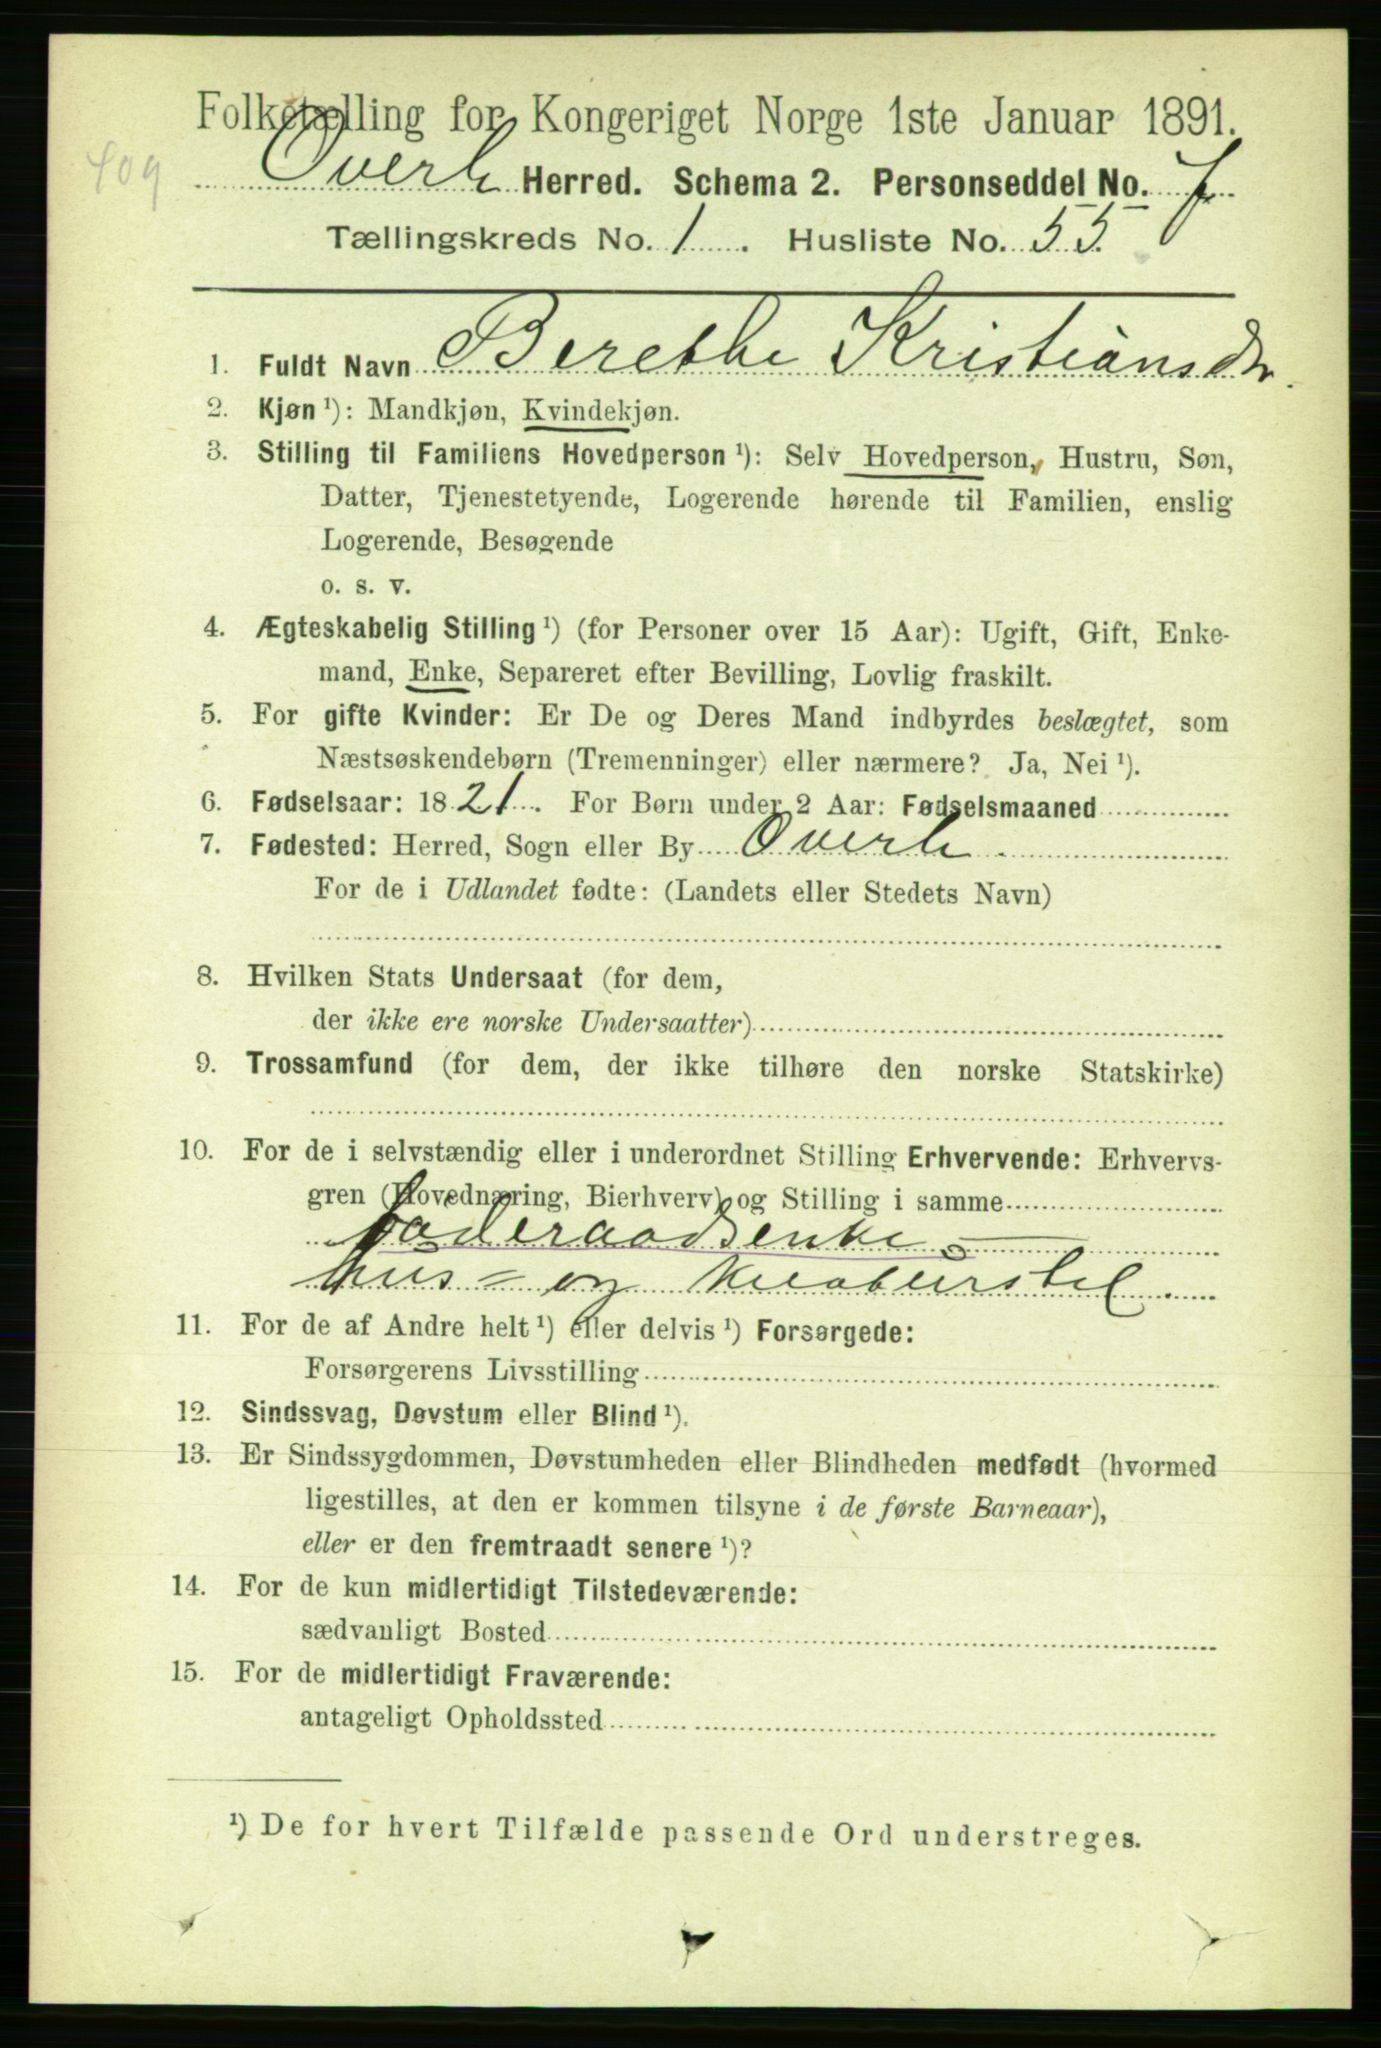 409
Folketælling for Kongeriget Norge 1ste Januar 1891.
Overh Herred. Schema 2. Personseddel No. 7
Tællingskreds No. 1. Husliste No. 55.
1. Fuldt Navn Berethe Kristiansdr.
2. Kjøn ¹): Mandkjøn, Kvindekjøn.
3. Stilling til Familiens Hovedperson ¹): Selv Hovedperson, Hustru, Søn,
Datter, Tjenestetyende, Logerende hørende til Familien, enslig
Logerende, Besøgende
o. s. v.
4. Ægteskabelig Stilling ¹) (for Personer over 15 Aar): Ugift, Gift, Enke-
mand, Enke, Separeret efter Bevilling, Lovlig fraskilt.
5. For gifte Kvinder: Er De og Deres Mand indbyrdes beslægtet, som
Næstsøskendebørn (Tremenninger) eller nærmere? Ja, Nei ¹).
6. Fødselsaar: 1821. For Børn under 2 Aar: Fødselsmaaned
7. Fødested: Herred, Sogn eller By Overh
For de i Udlandet fødte: (Landets eller Stedets Navn)
8. Hvilken Stats Undersaat (for dem,
der ikke ere norske Undersaatter)
9. Trossamfund (for dem, der ikke tilhøre den norske Statskirke)
10. For de i selvstændig eller i underordnet Stilling Erhvervende: Erhvervs-
gren (Hovednæring, Bierhverv) og Stilling i samme
Føderaadsenke
hus- og
11. For de af Andre helt ¹) eller delvis ¹) Forsørgede:
Forsørgerens Livsstilling
12. Sindssvag, Døvstum eller Blind ¹).
13. Er Sindssygdommen, Døvstumheden eller Blindheden medfødt (hvormed
ligestilles, at den er kommen tilsyne i de første Barneaar),
eller er den fremtraadt senere ¹)?
14. For de kun midlertidigt Tilstedeværende:
sædvanligt Bosted
15. For de midlertidigt Fraværende:
antageligt Opholdssted
¹) De for hvert Tilfælde passende Ord understreges.